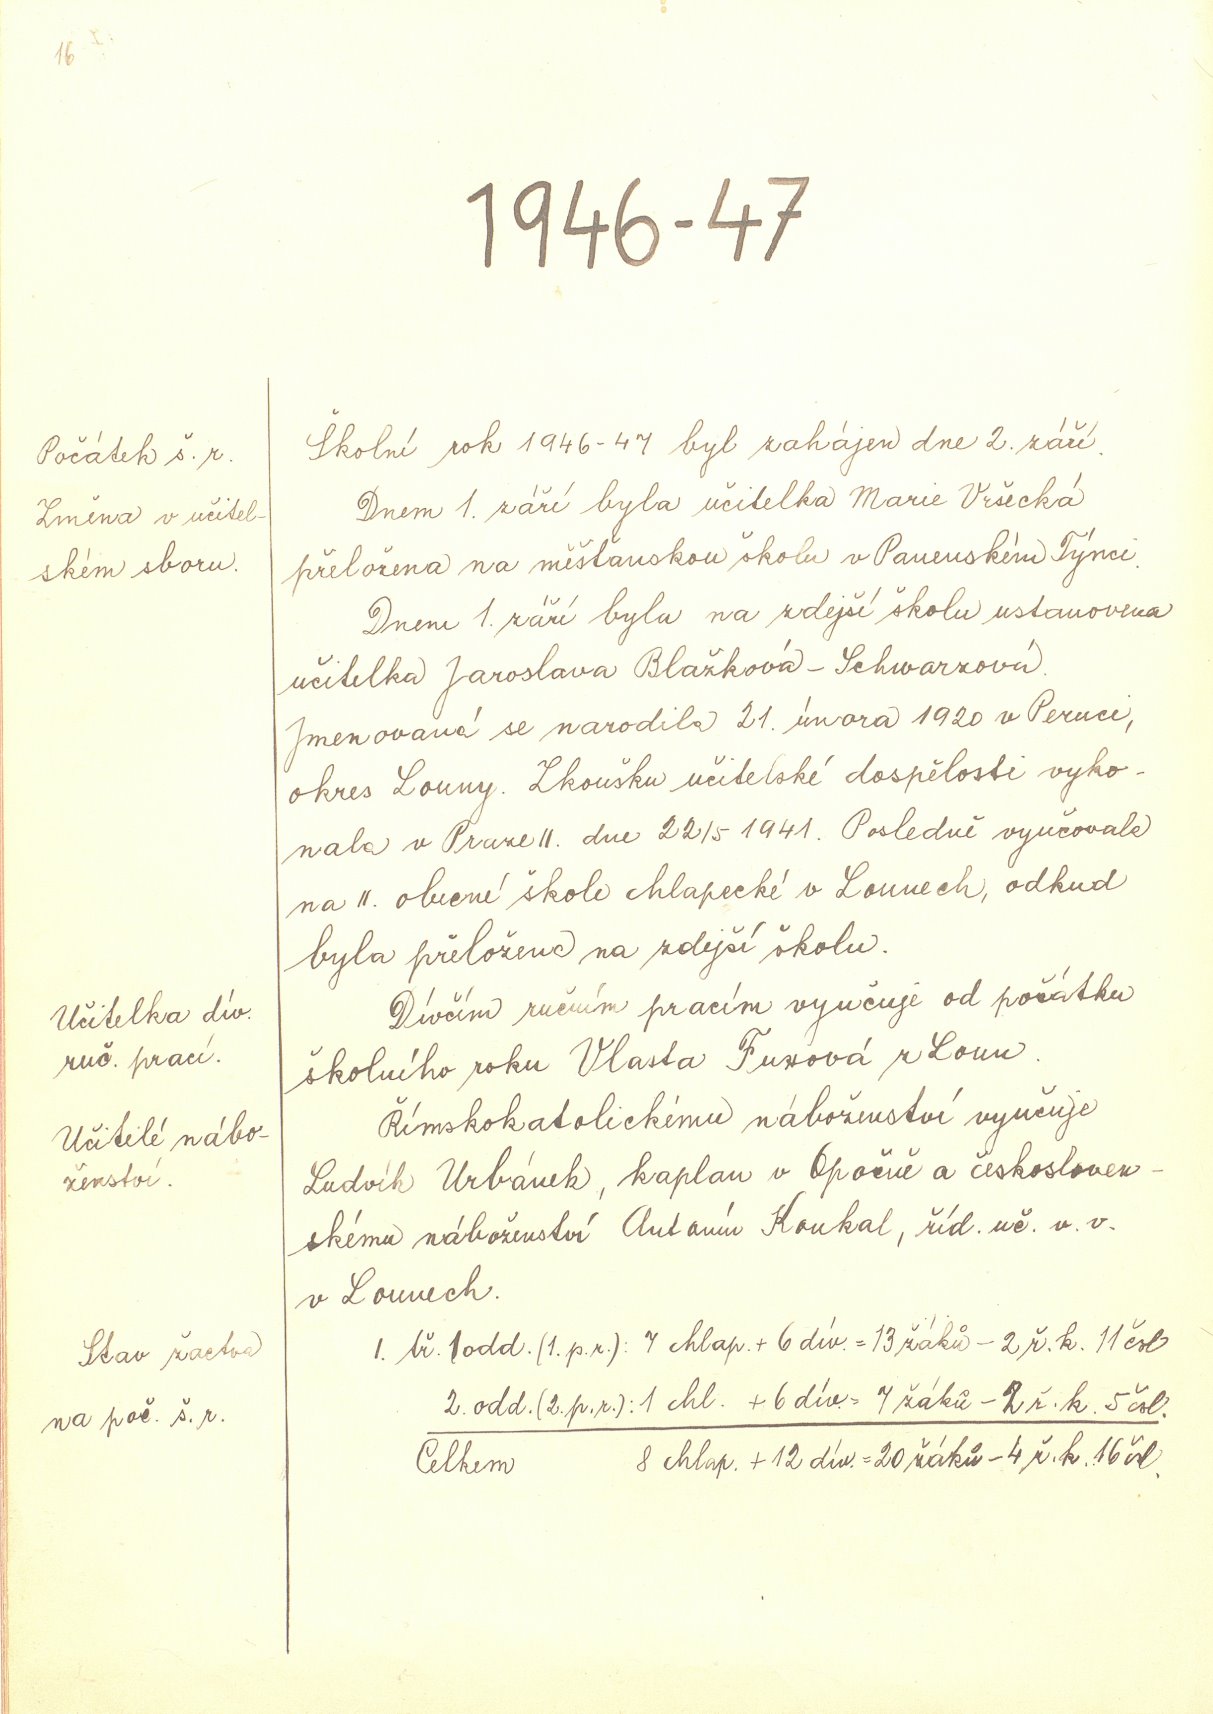 16
1946-47
Počátek š. r.
Školní rok 1946-47 byl zahájen dne 2. září.
Změna v učitel-
ském sboru.
Dnem 1. září byla učitelka Marie Vršecká
přeložena na měšťanskou školu v Panenském Týnci.
Dnem 1. září byla na zdejší školu ustanovena
učitelka Jaroslava Blažková - Schwarzová.
Jmenovaná se narodila 21. února 1920 v Peruci,
okres Louny. Zkoušku učitelské dospělosti vyko-
nala v Praze II. dne 22/5 1941. Posledně vyučovala
na II. obecné škole chlapecké v Lounech, odkud
byla přeložena na zdejší školu.
Učitelka dív.
ruč. prací.
Dívčím ručním pracím vyučuje od počátku
školního roku Vlasta Fuxová z Loun.
Učitelé nábo-
ženství.
Římskokatolickému náboženství vyučuje
Ludvík Urbánek, kaplan v Opočně a českosloven-
skému náboženství Antonín Koukal, říd. uč. v. v.
v Lounech.
Stav žactva
na poč. š. r.
1. tř. 1 odd. (1. p. r.): 7 chlap. + 6 dív. = 13 žáků - 2 ř. k. 11 čsl
2. odd. (2. p. r.): 1 chl. + 6 dív. = 7 žáků - 2 ř. k. 5 čsl.
Celkem 8 chlap. + 12 dív. = 20 žáků - 4 ř. k. 16 čsl.